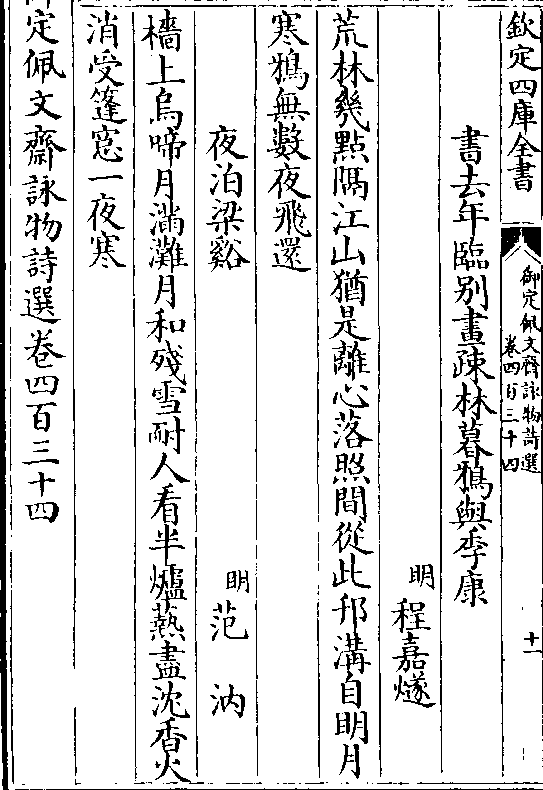 欽定四庫全書
御定佩文齋詠物詩選
卷四百三十四
十一
書去年臨别畫疎林暮鴉與季康
明 程嘉燧
荒林幾點隔江山猶是離心落照間從此邗溝自明月
寒鴉無數夜飛還
夜泊梁谿
明 范汭
檣上烏啼月滿灘月和殘雪耐人看半爐爇盡沈香火
消受篷窓一夜寒
御定佩文齋詠物詩選卷四百三十四